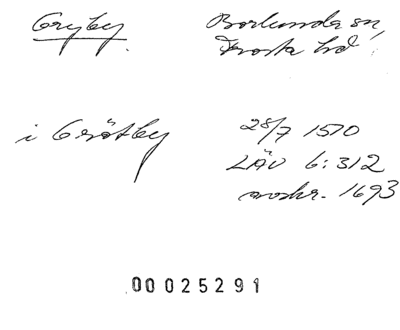 Gryby. Borlunda sn,
Frosta hd
i Grötby 28/7 1570
LÄU 6:312
avskr. 1693
00025291